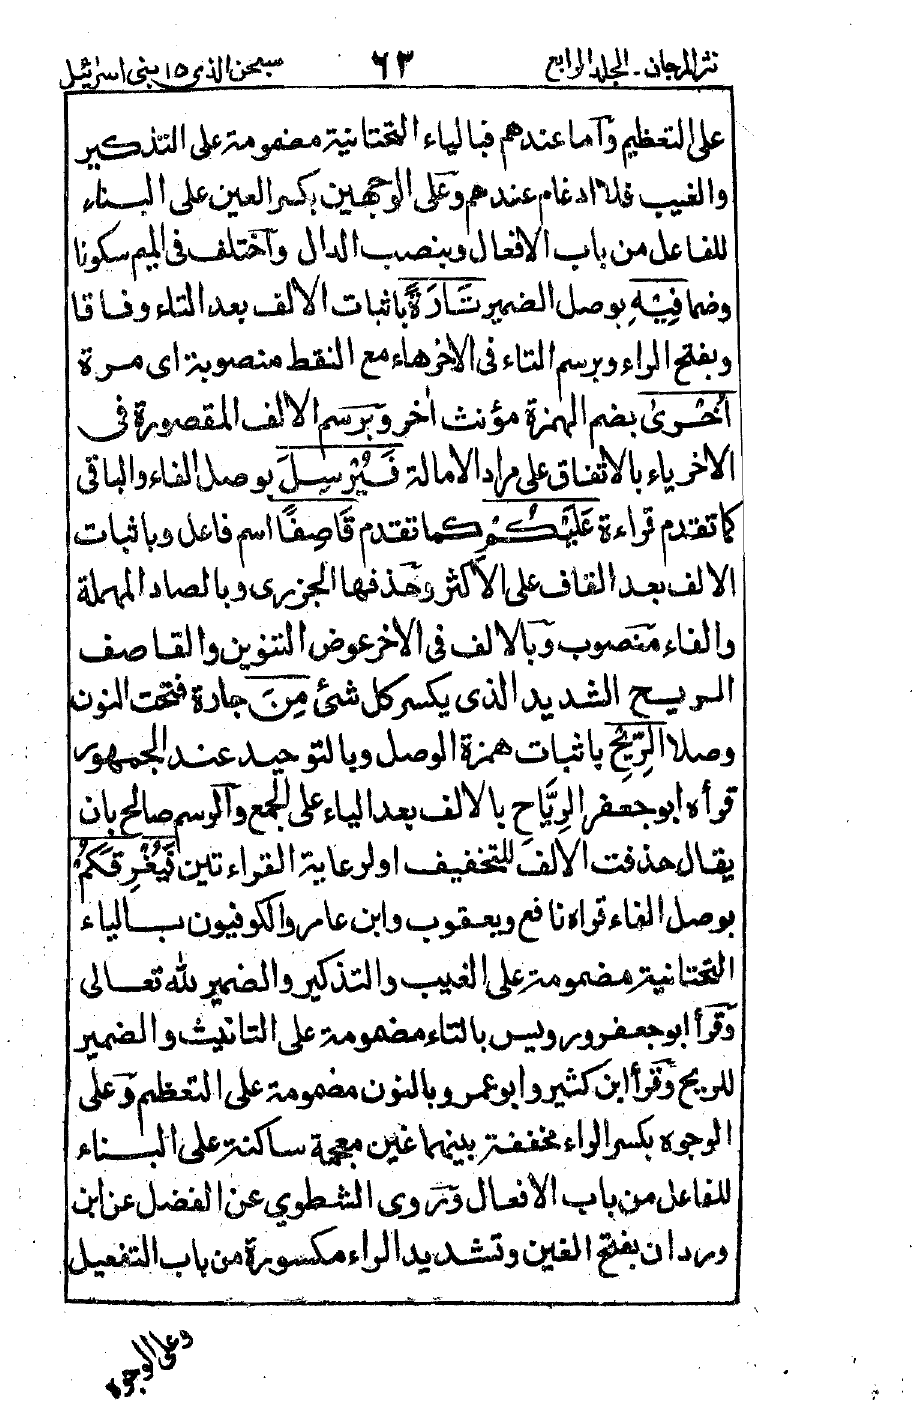 نثر المرجان - الجلد الرابع ٦٣ سبحن الذى ١٥ بنى اسرائيل
على التعظيم وَآما عندهم فبالياء التحتانية مضمومة على التذكير
والغيب فلا ادغام عندهم وعَلى الوجهين بكسر العين على البناء
للفاعل من باب الافعال وبنصب الدال وآختلف فى الميم سكونا
وضما فِيْهِ بوصل الضمير تَارَةً باثبات الالف بعد التاء وفاقا
وبفتح الراء وبرسم التاء فى الاخرهاء مع النقط منصوبة اى مرة
اُخْرىٰ بضم الهمزة مؤنث اٰخر وَبرسم الالف المقصورة فى
الاخر ياء بالاتفاق على مراد الامالة فَيُرْسِلَ بوصل الفاء والباقى
كما تقدم قراءة عَلَيْكُمْ كما تقدم قَاصِفًا اسم فاعل وباثبات
الالف بعد القاف على الاكثر وحَذفها الجزرى وبالصاد المهملة
والفاء منصوب وَبالالف فى الاخر عوض التنوين والقاصف
الريح الشديد الذى يكسر كل شئ مِنَ جارة فتحت النون
وصلا الرِّيْحِ باثبات همزة الوصل وبالتوحيد عند الجمهور
قرأه ابو جعفر الرِيَّاحِ بالالف بعد الياء على الجمع وَآلرسم صالح بان
يقال حذفت الالف للتخفيف اولرعاية القراءتين فَيُغْرِقَكُمْ
بوصل الفاء قراه نافع ويعقوب وابن عامر والكوفيون بالياء
التحتانية مضمومة على الغيب والتذكير والضمير لله تعالى
وَقرأ ابو جعفر ورويس بالتاء مضمومة على التانيث والضمير
للريح وَقرأ ابن كثير وابو عمرو بالنون مضمومة على التعظيم وَعلى
الوجوه بكسر الراء مخففة بينهما غين معجمة ساكنة على البناء
للفاعل من باب الافعال وَروى الشطوي عن الفضل عن ابن
وردان بفتح الغين وتشديد الراء مكسورة من باب التفعيل
وعلى الوجوه